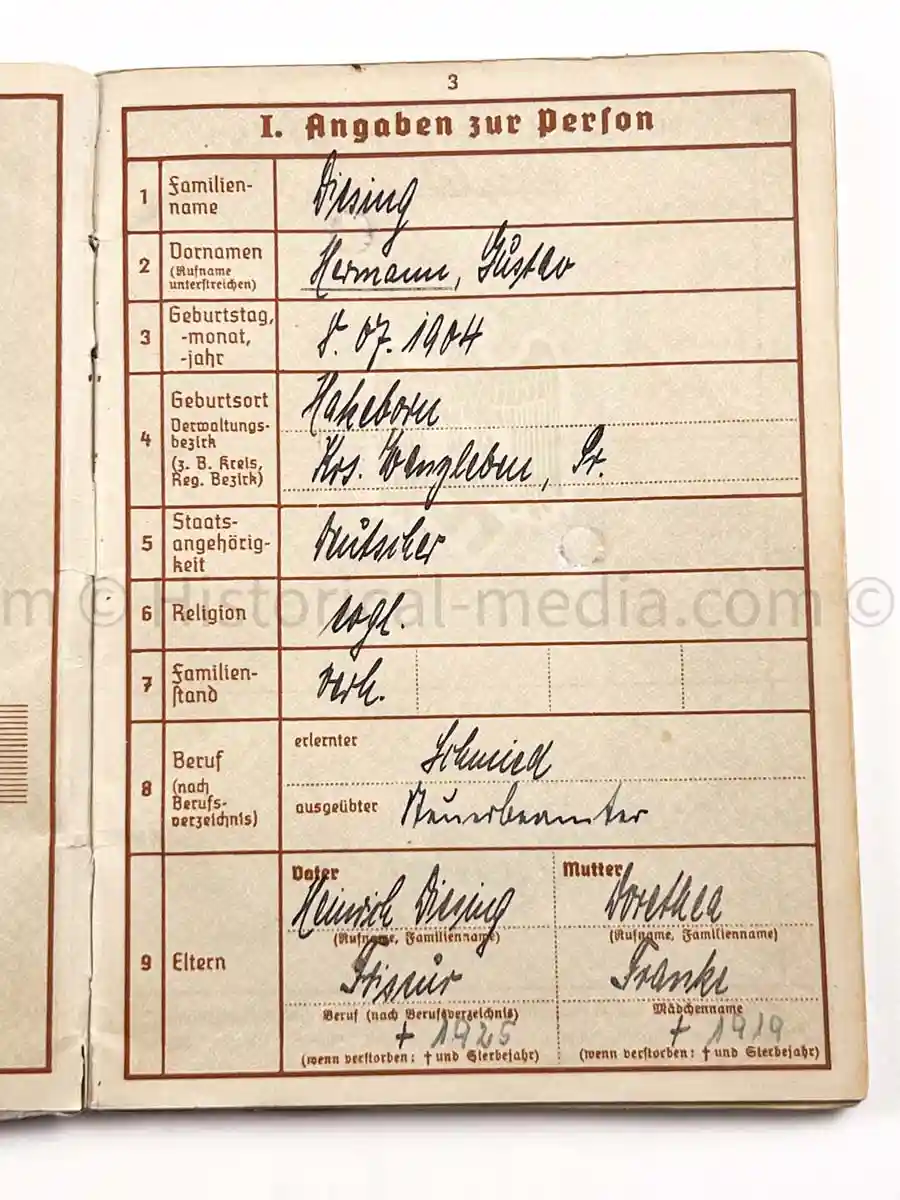 3
I. Angaben zur Person
1
Familien-
name
Diesing
2
Vornamen
(Rufname
unterstreichen)
Hermann, Gustav
3
Geburtstag,
-monat,
-jahr
8. 07. 1904
4
Geburtsort
Verwaltungs-
bezirk
(z. B. Kreis,
Reg. Bezirk)
Hakeborn
Krs. Wanzleben, Pr.
5
Staats-
angehörig-
keit
Deutscher
m © Historical-media.com ©
6
Religion
evgl.
7
Familien-
stand
verh.
8
Beruf
(nach
Berufs-
verzeichnis)
erlernter
Schmied
ausgeübter
Steuerbeamter
9
Eltern
Vater
Heinrich Diesing
(Rufname, Familienname)
Friseur
Beruf (nach Berufsverzeichnis)
† 1925
(wenn verstorben: † und Sterbejahr)
Mutter
Dorethea
(Rufname, Familienname)
Franke
Mädchenname
† 1919
(wenn verstorben: † und Sterbejahr)